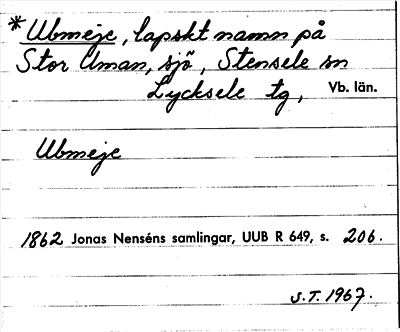 *Ubmeje, lapskt namn på
Stor Uman, sjö, Stensele sn
Lycksele tg, Vb. län.
Ubmeje
1862 Jonas Nenséns samlingar, UUB R 649, s. 206.
S.T. 1967.